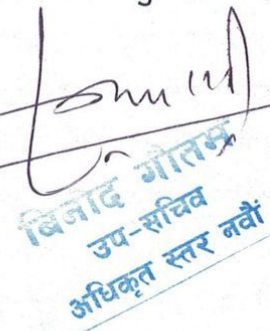 बिनोद गौतम
उप-सचिव
अधिकृत स्तर नवौं